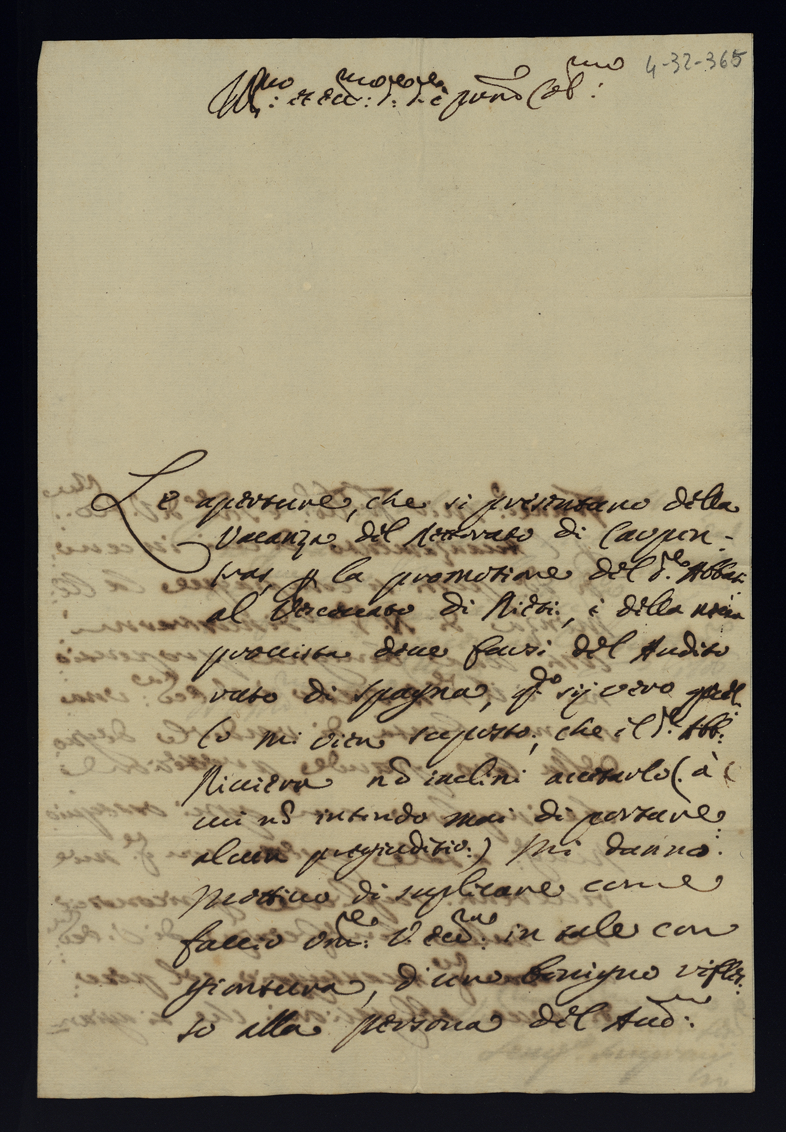 4-32-365
Ill:mo et ecc:mo S:re S:re e pron Col:mo
Le aperture, che si presentano della
Vacanza del Rettorato di Carpen-
tras, p la promotione del S.re Abbati
al Vescovato di Rieti, e della nuova
provista deve farsi del Audito
rato di Spagna, q.do sij vero quel
lo mi vien supposto, che il S.re Abb:
Riviera nõ inclini accetarlo (à
cui nõ intendo mai di portare
alcun pregiuditio:) mi danno
mottivo di suplicare come
faccio V. ecc:ma in tale con
giontura, d'uno benigno rifles:
so alla persona del Aud: